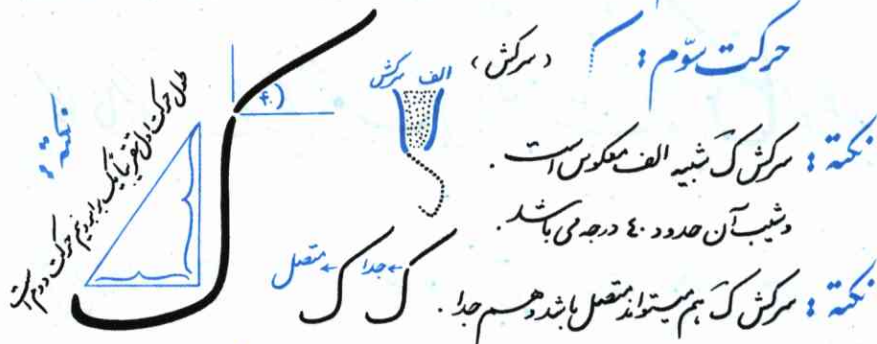 حرکت سوّم : «سرکش»
الف سرکش
۴۰
نکته : سرکش ک شبیه الف معکوس است .
وشیب آن حدود ۴۰ درجه می باشد .
نکته : سرکش ک هم میتواند متصل باشد و هم جدا .
ک ← جدا ک ← متصل
نکته :
طول حرکت اول تقریباً یک برابر و نیم حرکت دوم است
ک